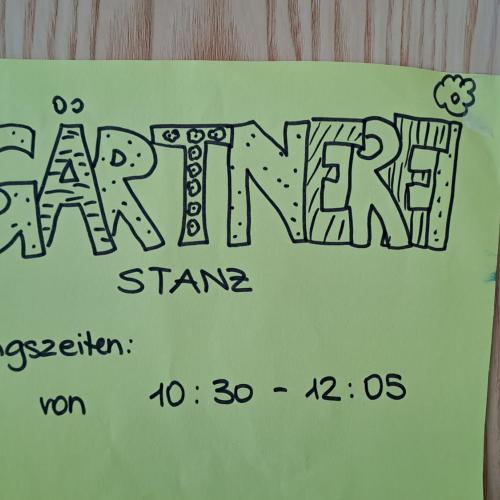 GÄRTNEREI
STANZ
ngszeiten:
von 10:30 - 12:05